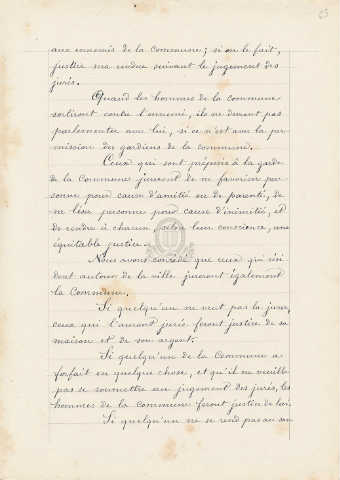 aux ennemis de la Commune ; si on le fait,
justice sera rendue suivant le jugement des
jurés.
Quand les hommes de la commune
sortiront contre l'ennemi, ils ne devront pas
parlementer avec lui, si ce n'est avec la per
mission des gardiens de la commune.
Ceux qui sont préposés à la garde
de la Commune jureront de ne favoriser per
sonne pour cause d'amitié ou de parenté, de
ne léser personne pour cause d'inimitié, et
de rendre à chacun, selon leur conscience, une
équitable justice.
Nous avons concédé que ceux qui rési
dent autour de la ville jureront également
la Commune.
Si quelqu'un ne veut pas la jurer,
ceux qui l'auront juré feront justice de sa
maison et de son argent.
Si quelqu'un de la Commune a
forfait en quelque chose, et qu'il ne veuille
pas se soumettre au jugement des jurés, les
hommes de la commune feront justice de lui.
Si quelqu'un ne se rend pas au son